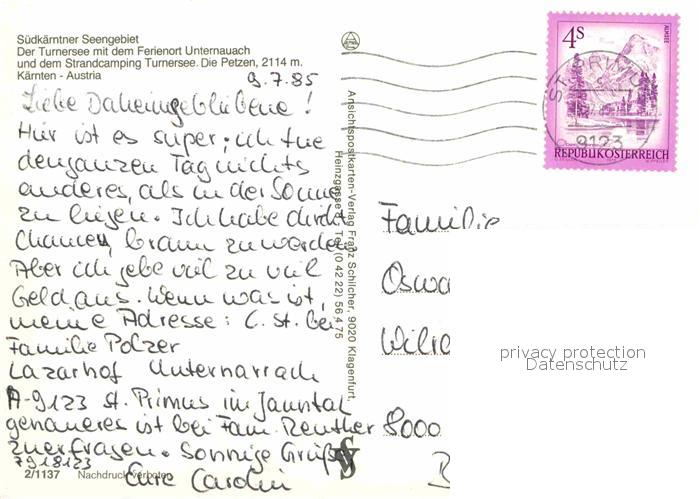 Südkärntner Seengebiet
Der Turnersee mit dem Ferienort Unternauach
und dem Strandcamping Turnersee. Die Petzen, 2114 m.
Kärnten - Austria
9.7.85
Liebe Daheimgebliebene!
Hier ist es super; ich tue
den ganzen Tag nichts
anderes, als in der Sonne
zu liegen. Ich habe direkt
Chancen, braun zu werden.
Aber ich gebe viel zu viel
Geld aus. Wenn was ist,
meine Adresse: C. St. bei
Familie Polzer
Lazarhof Unternarrach
A-9123 St. Primus im Jauntal
genaueres ist bei Fam. Reuther
zu erfragen. Sonnige Grüße
Eure Carolin
7918123
2/1137 Nachdruck verboten
Ansichtspostkarten-Verlag Franz Schilcher, 9020 Klagenfurt,
Heinzgasse Tel. (0 42 22) 56 4 75
4 S
ALMSEE
REPUBLIK ÖSTERREICH
ST. PRIMUS
9123
Familie
Oswa
Wilra
8000
privacy protection
Datenschutz